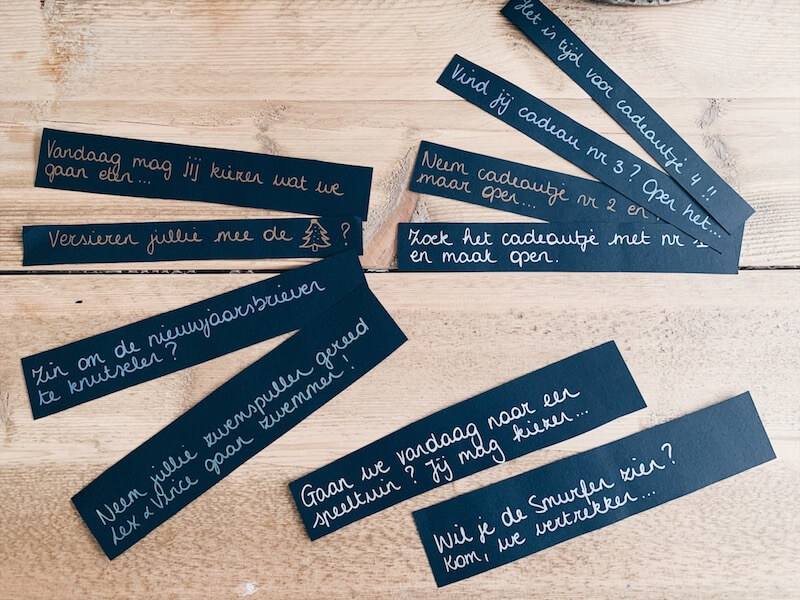 Vandaag mag jij kiezen wat we
gaan eten...
Versieren jullie mee de ?
Zin om de nieuwjaarsbrieven
te knutselen?
Neem jullie zwemspullen gereed
Lex & Vince gaan zwemmen!
Het is tijd voor cadeautje 4!!
Vind jij cadeau nr 3? Open het...
Neem cadeautje nr 2 en
maar open...
Zoek het cadeautje met nr 1
en maak open.
Gaan we vandaag naar een
speeltuin? Jij mag kiezen...
Wil je de Smurfen zien?
Kom, we vertrekken...